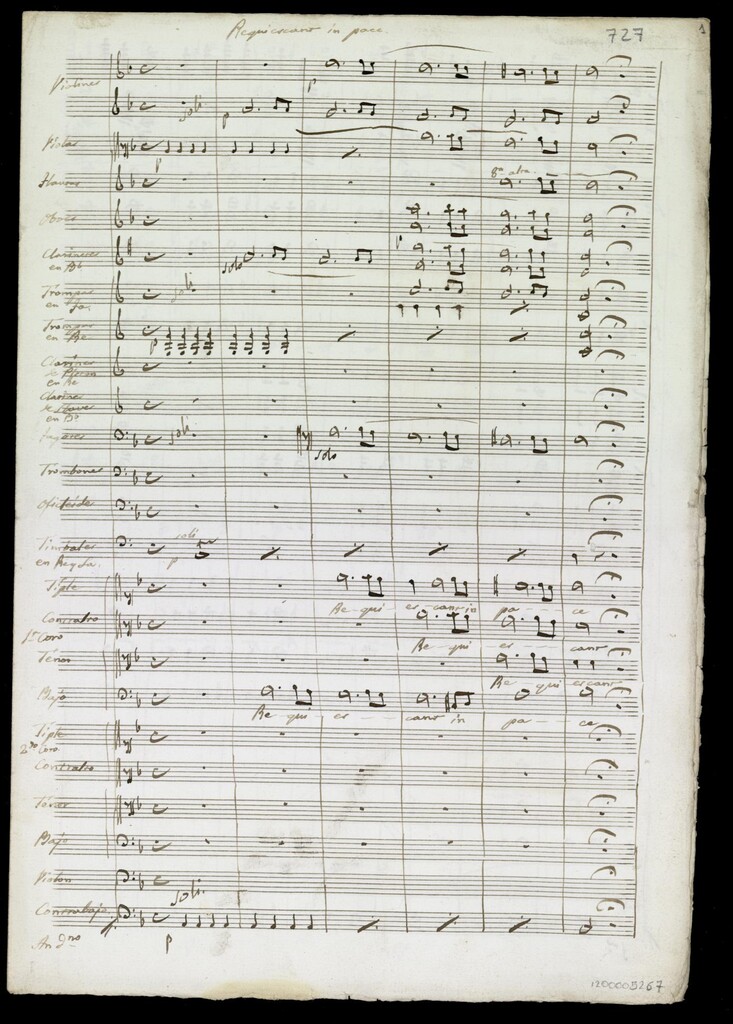 Requiescant in pace.
727
1
Violines
p
soli
p
Violas
p
Flautas
8ª alta
Oboes
p
Clarinetes
en Bb
solo
Trompas
en Fa
soli
Trompas
en Re
p
Clarines
de Piston
en Re
Clarines
de Llaves
en Bb
Fagotes
soli
solo
Trombones
Oficleide
Timbales
en Re y La
soli
p
Tiple
Re - qui es - cant in pa - - - ce
Contralto
1er Coro
Re - qui es - - cant
Tenor
Re - qui escant
Bajo
Re qui es - - - cant in pa - - ce
Tiple
2do Coro
Contralto
Tenor
Bajo
Violon
soli.
Contrabajo
p
And.no
1200005267